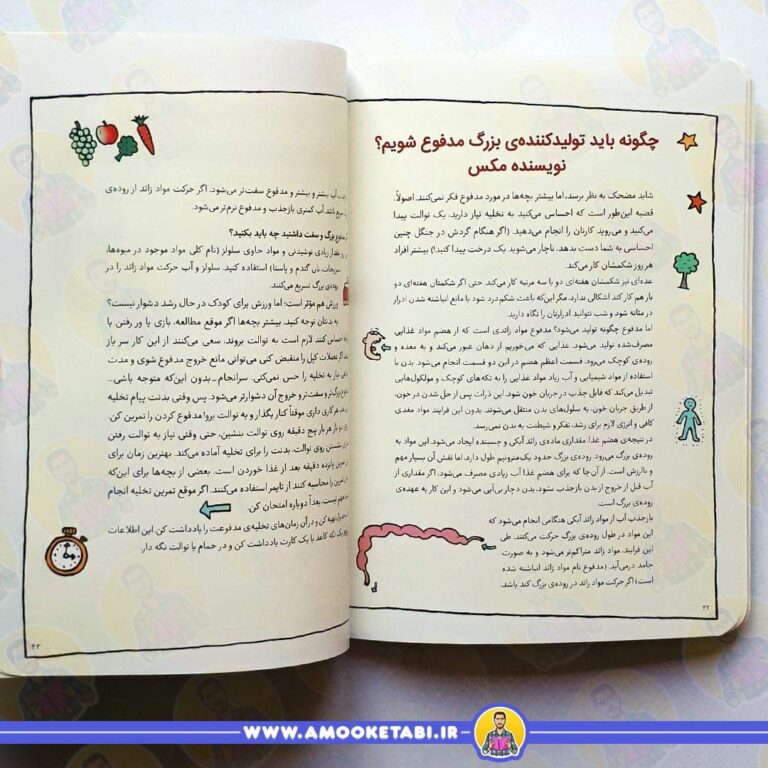 چگونه باید تولیدکننده‌ی بزرگ مدفوع شویم؟
نویسنده مکس
شاید مضحک به نظر برسد، اما بیشتر بچه‌ها در مورد مدفوع فکر نمی‌کنند. اصولاً،
قضیه این‌طور است که احساس می‌کنید به تخلیه نیاز دارید، یک توالت پیدا
می‌کنید و می‌روید کارتان را انجام می‌دهید. (اگر هنگام گردش در جنگل چنین
احساسی به شما دست بدهد، ناچار می‌شوید یک درخت پیدا کنید!) بیشتر افراد
هر روز شکمشان کار می‌کند.
عده‌ای نیز شکمشان هفته‌ای دو یا سه مرتبه کار می‌کند. حتی اگر شکمتان هفته‌ای دو
بار هم کار کند اشکالی ندارد، مگر این‌که باعث شکم‌درد شود یا مانع انباشته شدن ادرار
در مثانه شود و شب نتوانید ادرارتان را نگه دارید.
اما مدفوع چگونه تولید می‌شود؟ مدفوع مواد زائدی است که از هضم مواد غذایی
مصرف‌شده تولید می‌شود. غذایی که می‌خوریم از دهان عبور می‌کند و به معده و
روده‌ی کوچک می‌رود. قسمت اعظم هضم در این دو قسمت انجام می‌شود. بدن با
استفاده از مواد شیمیایی و آب زیاد مواد غذایی را به تکه‌های کوچک و مولکول‌هایی
تبدیل می‌کند که قابل جذب در جریان خون شود. این ذرات پس از حل شدن در خون،
از طریق جریان خون، به سلول‌های بدن منتقل می‌شوند. بدون این فرایند مواد مغذی
کافی و انرژی لازم برای رشد، تفکر و شیطنت به بدن نمی‌رسد.
در نتیجه‌ی هضم غذا، مقداری ماده‌ی زائد آبکی و چسبنده ایجاد می‌شود. این مواد به
روده‌ی بزرگ می‌رود. روده‌ی بزرگ حدود یک‌مترونیم طول دارد، اما نقش آن بسیار مهم
و باارزش است. از آن‌جا که برای هضم غذا آب زیادی مصرف می‌شود، اگر مقداری از
آب قبل از خروج از بدن بازجذب نشود، بدن دچار بی‌آبی می‌شود و این کار به عهده‌ی
روده‌ی بزرگ است.
بازجذب آب از مواد زائد آبکی هنگامی انجام می‌شود که
این مواد در طول روده‌ی بزرگ حرکت می‌کنند. طی
این فرایند، مواد زائد متراکم‌تر می‌شود و به صورت
جامد درمی‌آید. (مدفوع نام مواد زائد انباشته شده
است) اگر حرکت مواد زائد در روده‌ی بزرگ کند باشد،
۴۲
آب بیشتر و بیشتر و مدفوع سفت‌تر می‌شود. اگر حرکت مواد زائد از روده‌ی
سریع باشد، آب کمتری بازجذب و مدفوع نرم‌تر می‌شود.
مدفوع بزرگ و سفت داشتید چه باید بکنید؟
مقدار زیادی نوشیدنی و مواد حاوی سلولز (نام کلی مواد موجود در میوه‌ها،
سبزیجات، نان گندم و پاستا) استفاده کنید. سلولز و آب حرکت مواد زائد را در
روده‌ی بزرگ تسریع می‌کنند.
ورزش هم مؤثر است؛ اما ورزش برای کودک در حال رشد دشوار نیست؟
به بدنتان توجه کنید. بیشتر بچه‌ها اگر موقع مطالعه، بازی یا ور رفتن با
احساس کنند لازم است به توالت بروند، سعی می‌کنند از این کار سر باز
اگر عضلات کپل را منقبض کنی می‌توانی مانع خروج مدفوع شوی و مدت
نیاز به تخلیه را حس نمی‌کنی. سرانجام ــ بدون این‌که متوجه باشی ــ
بزرگ‌تر و سفت‌تر و خروج آن دشوارتر می‌شود. پس وقتی بدنت پیام تخلیه
هر کاری داری موقتاً کنار بگذار و به توالت برو! مدفوع کردن را تمرین کن.
هر بار پنج دقیقه روی توالت بنشین، حتی وقتی نیاز به توالت رفتن
نشستن روی توالت، بدنت را برای تخلیه آماده می‌کند. بهترین زمان برای
تمرین پانزده دقیقه بعد از غذا خوردن است. بعضی از بچه‌ها برای این‌که
را محاسبه کنند از تایمر استفاده می‌کنند. اگر موقع تمرین تخلیه انجام
مهم نیست. بعداً دوباره امتحان کن.
تهیه کن و در آن زمان‌های تخلیه‌ی مدفوعت را یادداشت کن. این اطلاعات
یک تکه کاغذ یا یک کارت یادداشت کن و در حمام یا توالت نگه دار.
۴۳
WWW.AMOOKETABI.IR